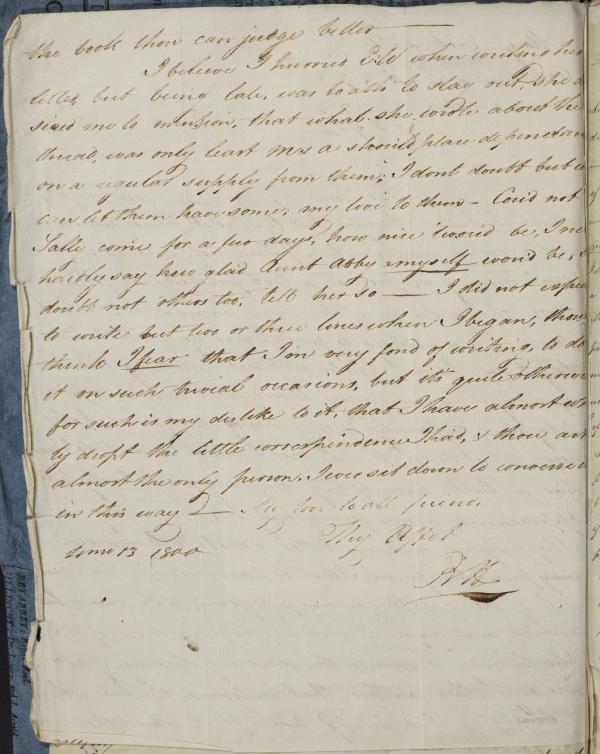 the book thou can judge better —
I believe I hurried E W when writing her
letter, but being late, was loath to stay out, she de
sired me to mention, that what she wrote about the
thread, was only least M & a should place dependance
on a regular supply from them; I dont doubt but
can let them have some; my love to them – Coud not
Sally come for a few days, how nice 'twoud be, I ne
hardly say how glad Aunt Abby myself woud be, &
doubt not others too, tell her so — I did not expec
to write but two or three lines when I began, thou
think I fear that I'm very fond of writing, to do
it on such trivial occasions, but it's quite otherwise
for such is my dislike to it, that I have almost
ly dropt the little correspindence I had, & thou art
almost the only person I ever sit down to converse
in this way — My love to all friend,
Thy Affect
10 mo 13 1800